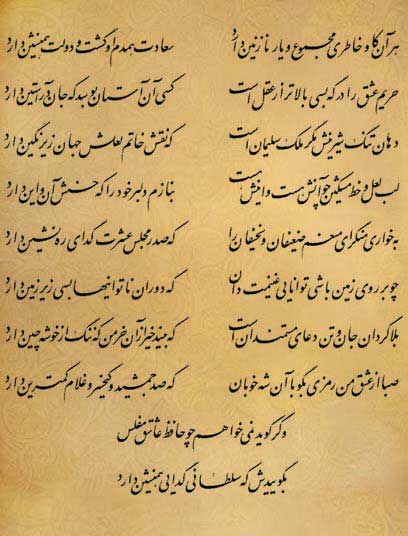 هر آن کاو خاطری مجموع و یار نازنین دارد سعادت همدم او گشت و دولت همنشین دارد
حریم عشق را درگه بسی بالاتر از عقل است کسی آن آستان بوسد که جان در آستین دارد
دهان تنگ شیرینش مگر ملک سلیمان است که نقش خاتم لعلش جهان زیر نگین دارد
لب لعل و خط مشکین چو آنش هست و اینش هست بنازم دلبر خود را که حسنش آن و این دارد
به خواری منگر ای منعم ضعیفان و نحیفان را که صدر مجلس عشرت گدای ره نشین دارد
چو بر روی زمین باشی توانایی غنیمت دان که دوران ناتوانیها بسی زیر زمین دارد
بلاگردان جان و تن دعای مستمندان است که بیند خیر از آن خرمن که ننگ از خوشه چین دارد
صبا از عشق من رمزی بگو با آن شه خوبان که صد جمشید و کیخسرو غلام کمترین دارد
و گر گوید نمی‌خواهم چو حافظ عاشق مفلس
بگوییدش که سلطانی گدایی همنشین دارد